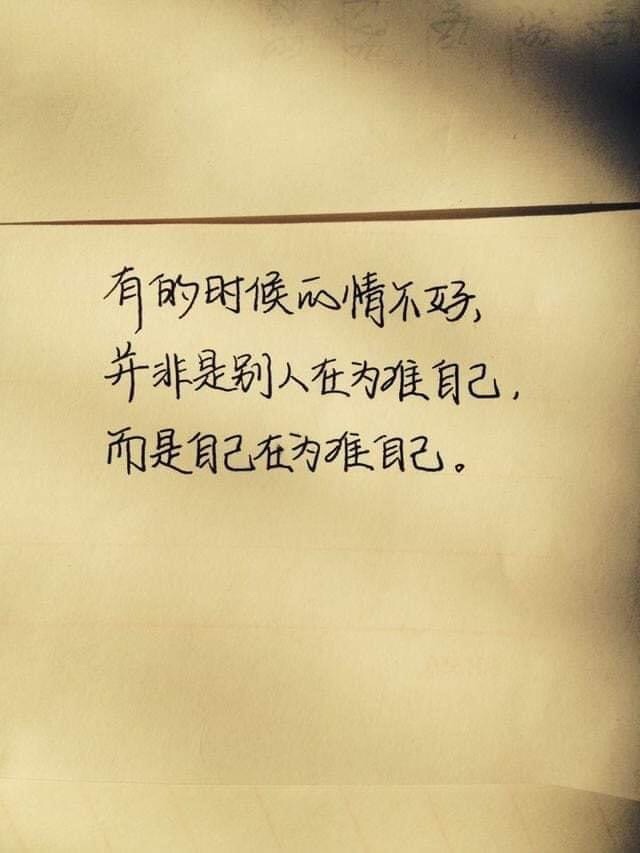 有的时候心情不好，
并非是别人在为难自己，
而是自己在为难自己。